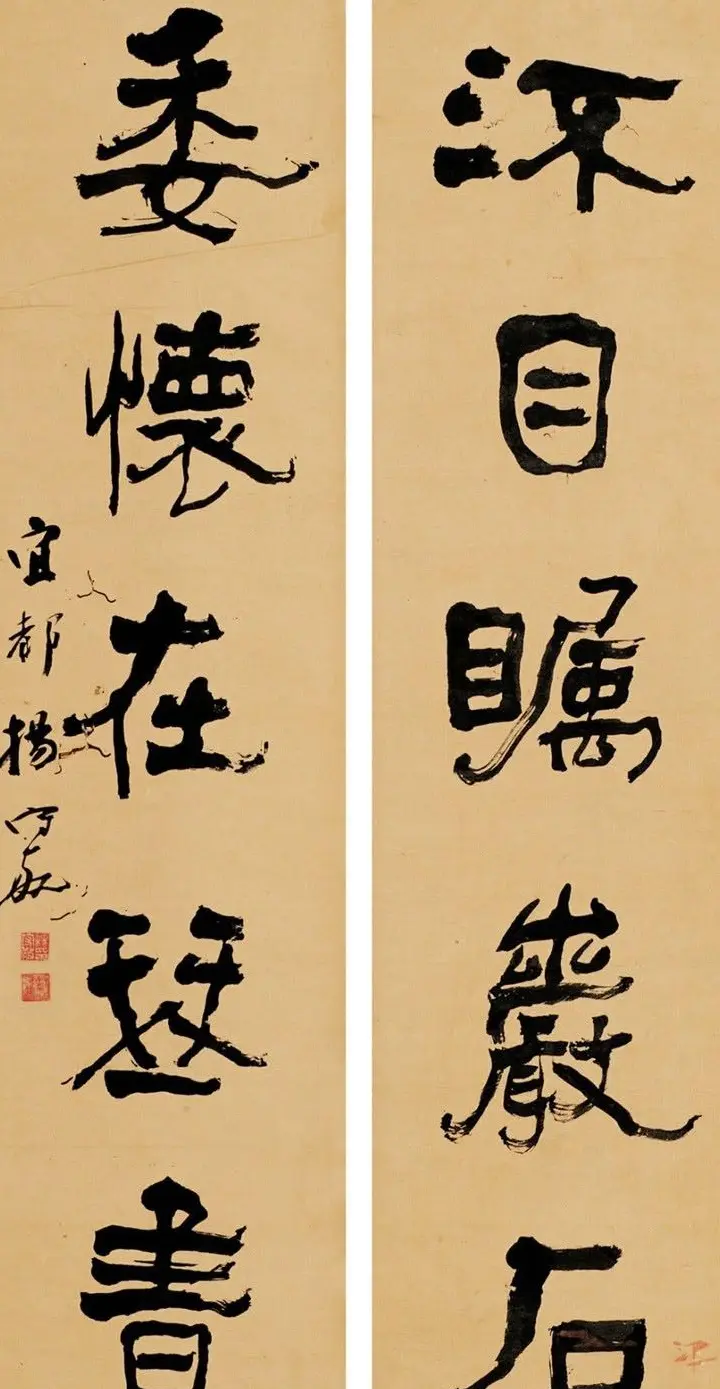 㳅目瞩巖石
委懷在琴書
宜都楊守敬